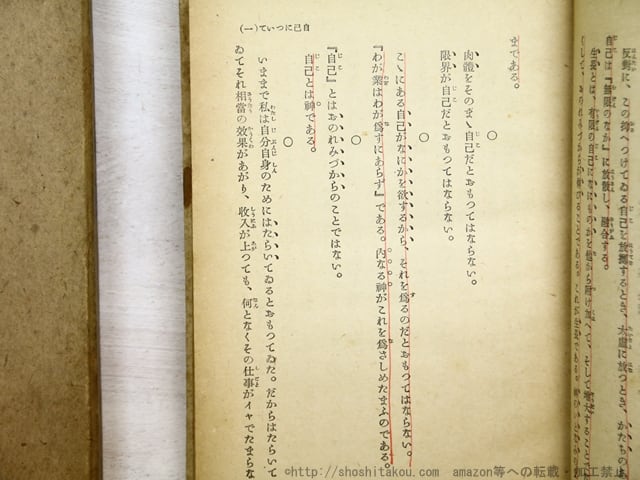 反對に、この掴へつけてゐる自己を放擲するとき、大虛に放つとき、かたちの
自己は『無限のなか』に放散し、融合する。
生長とは、有限の自己に
まである。
○
肉體をそのまゝ自己だとおもつてはならない。
限界が自己だとおもつてはならない。
○
こゝにある自己がなにかを欲するから、それを爲るのだとおもつてはならない。
『わが業はわが爲すにあらず』である。內なる神がこれを爲さしめたまふのである。
○
『自己』とはおのれみづからのことではない。
自己とは神である。
○
いままで私は自分自身のためにはたらいてゐるとおもつてゐた。だからはたらいて
ゐてそれ相當の效果があがり、收入が上つても、何となくその仕事がイヤでたまらな
自己について(一)
©http://shoshitakou.com amazon等への転載・加工禁止